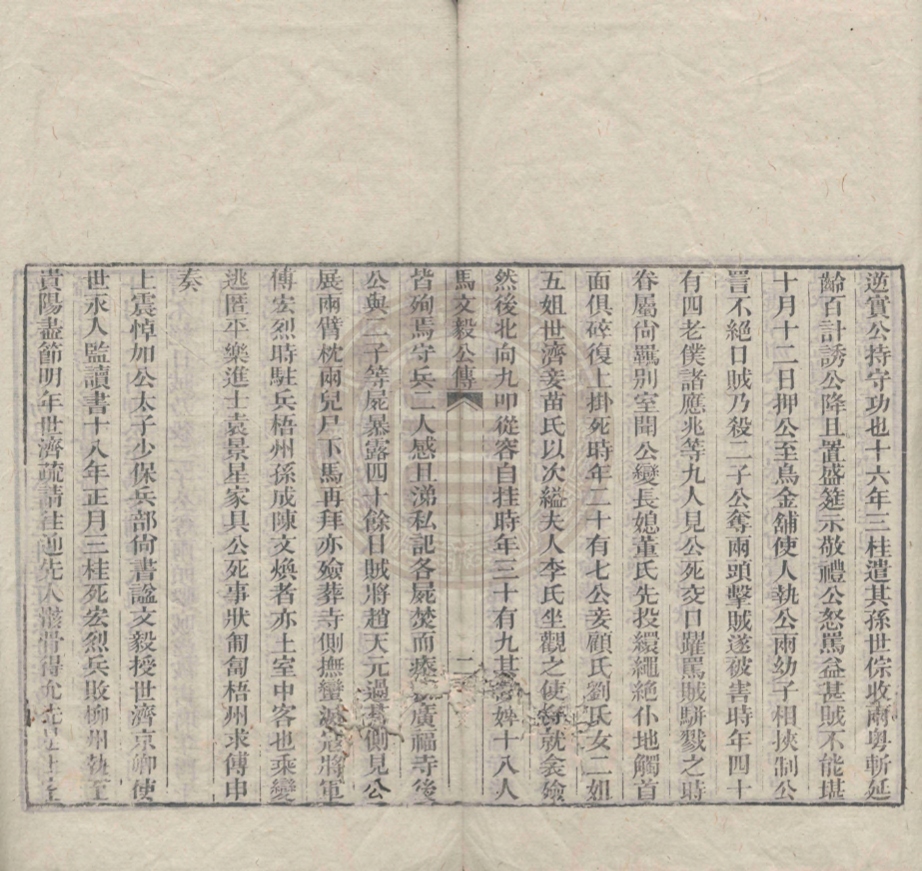 逆實公持守功也十六年三桂遣其孫世倧收兩粵斬延
齡百計誘公降且置盛筵示敬禮公怒罵益甚賊不能堪
十月十二日押公至烏金舖使人執公兩幼子相挾制公
詈不絕口賊乃殺二子公奪兩頭擊賊遂被害時年四十
有四老僕諸應兆等九人見公死交口躍罵賊駢戮之時
眷屬尙羈別室聞公變長媳董氏先投繯繩絶仆地觸首
面俱碎復上掛死時年二十有七公妾顧氏劉氏女二姐
五姐世濟妾苗氏以次縊夫人李氏坐觀之使各就衾殮
然後北向九叩從容自挂時年三十有九其婢十八人
馬文毅公傳 二
皆殉焉守兵二人感且涕私記各屍焚而瘞廣福寺後
公與二子等屍暴露四十餘日賊將趙天元過墓側見公
展兩臂枕兩兒尸下馬再拜亦殮葬寺側撫蠻滅寇將軍
傅宏烈時駐兵梧州孫成陳文煥者亦土室中客也乘變
逃匿平樂進士袁景星家具公死事狀匍匐梧州求傅申
奏
上震悼加公太子少保兵部尙書諡文毅授世濟京卿使
世永人監讀書十八年正月三桂死宏烈兵敗柳州執至
貴陽盡節明年世濟疏請往迎先人骸骨得允先是上至